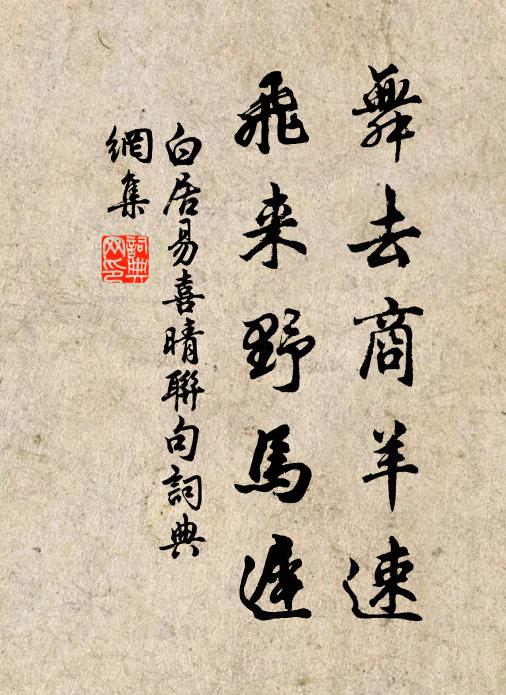 舞去商羊速
飛来野馬遲
白居易喜晴聯句詞典
網集
詞典
网印